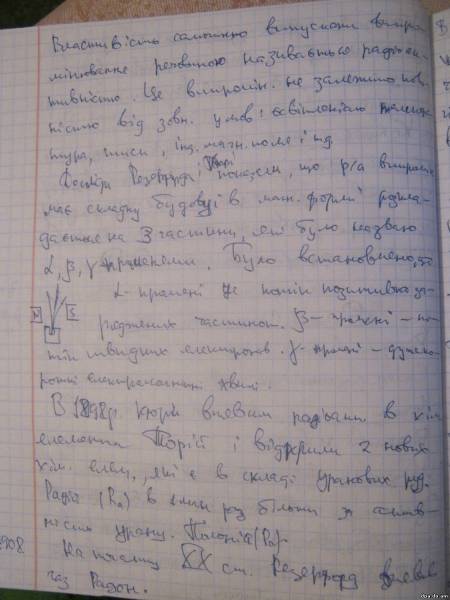 Властивість самочинно випускати випро-
мінювання речовиною називається радіоак-
тивністю. Це випромін. не залежить пов-
ністю від зовн. умов: освітленість, темпера
тура, тиск, інд. магн. поля і т.д.
Досліди Резерфорда і Кюрі показали, що р/а випромін.
має складну будову і в магн. формі розкла-
дається на 3 частини, які було названо
α, β, γ променями. Було встановлено, що
α-промені це потік позитивно за-
N S
ряджених частинок. β-промені - по-
тік швидких електронів. γ-промені - дуже ко-
роткі електромагнітні хвилі.
В 1898р. Кюрі виявили радіоакт. в хім
елемента Торій і відкрили 2 нових
хім. елем., які є в складі уранових руд.
Радій (Ra) в млн раз більша за актив-
ність урану. Полоній (Po).
1908
На початку XX ст. Резерфорд виявив
газ Радон.
dpa.do.am